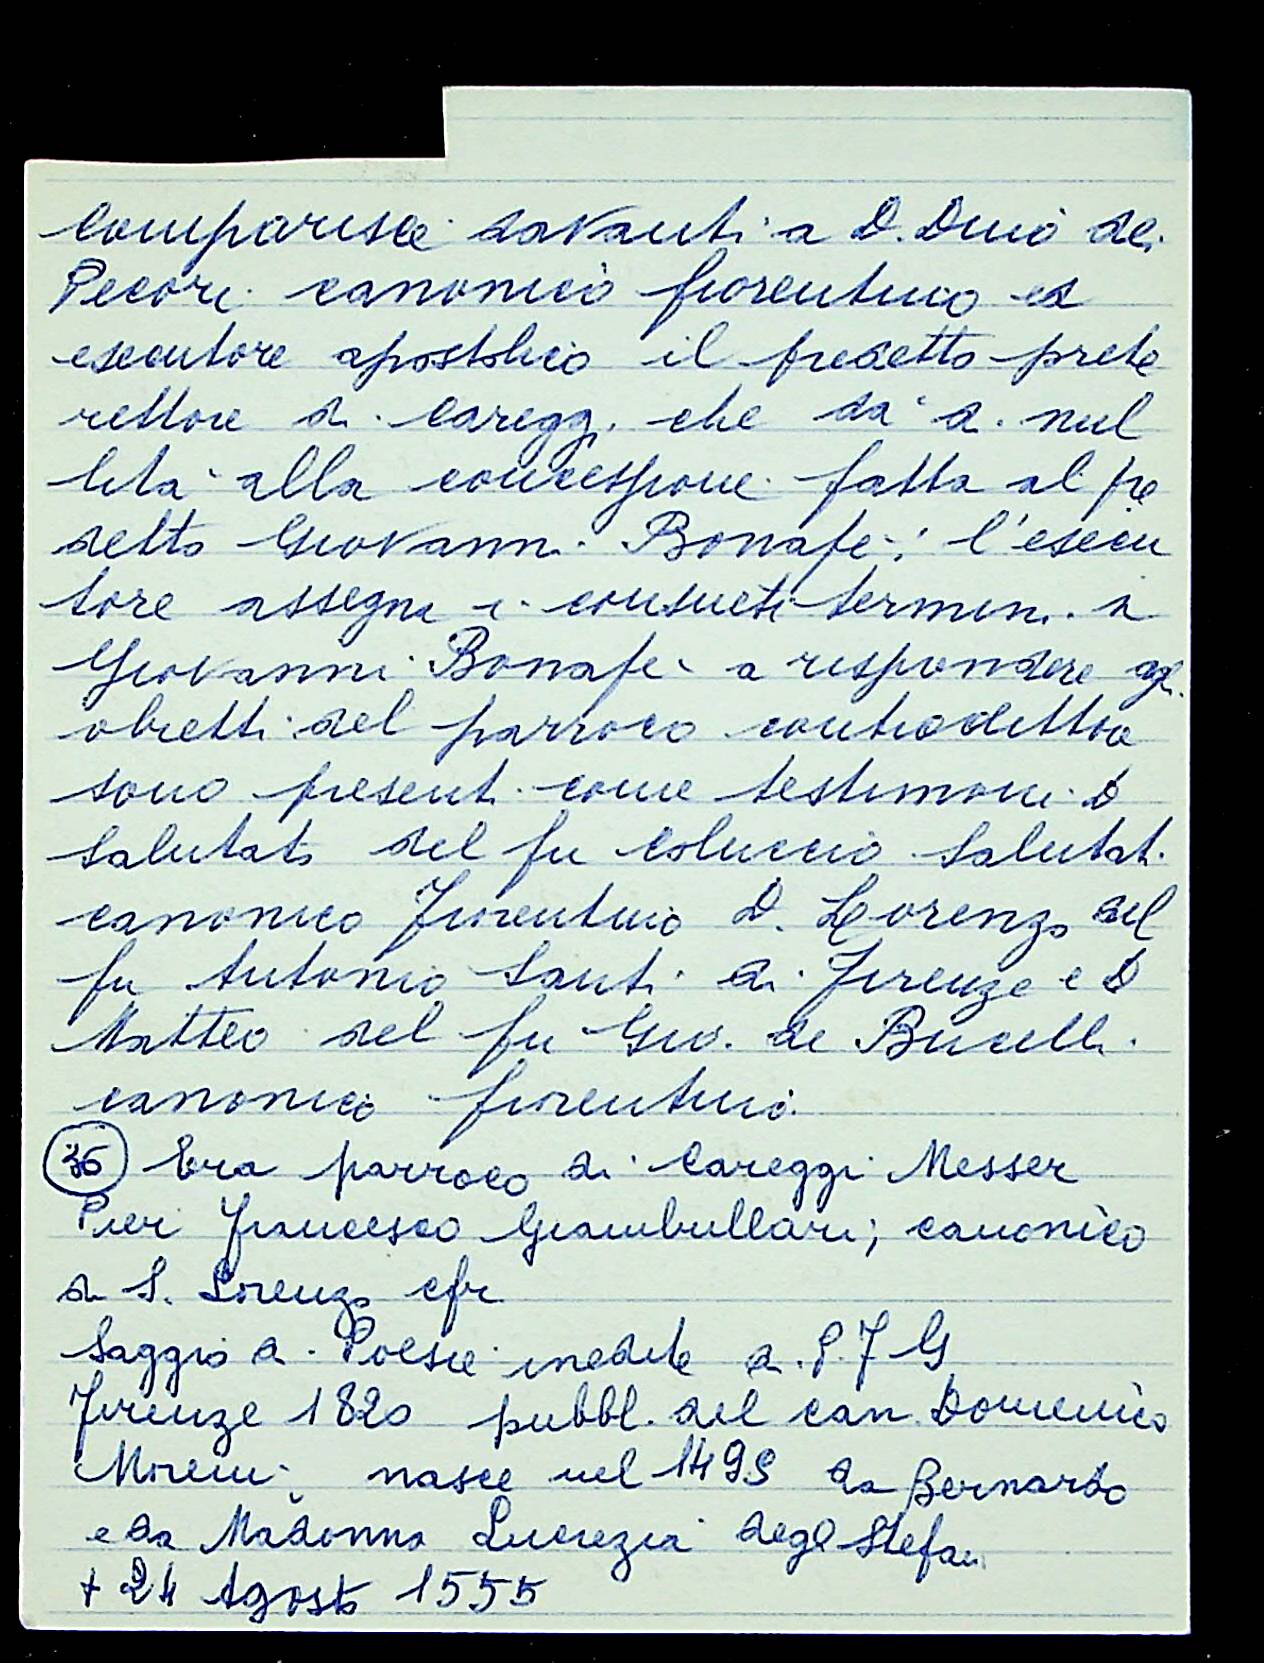 Comparisce davanti a D. Dino dei
Pecori canonico fiorentino ed
esecutore apostolico il predetto prete
rettore di Careggi che dà di nul
lità alla concessione fatta al pre
detto Giovanni Bonafè; l'esecu
tore assegna i consueti termini a
Giovanni Bonafè a rispondere agli
obietti del parroco contradittore
sono presenti come testimoni D
Salutato del fu Coluccio Salutati
canonico Fiorentino D. Lorenzo del
fu Antonio Santi di Firenze e D
Matteo del fu Gio. de Bucelli
canonico fiorentino.
36 Era parroco di Careggi Messer
Pier Francesco Giambullari; canonico
di S. Lorenzo cfr
Saggio di Poesie inedite di P. F G
Firenze 1820 pubbl. dal can. Domenico
Moreni, nasce nel 1495 da Bernardo
e da Madonna Lucrezia degl Stefani
+ 24 Agosto 1555